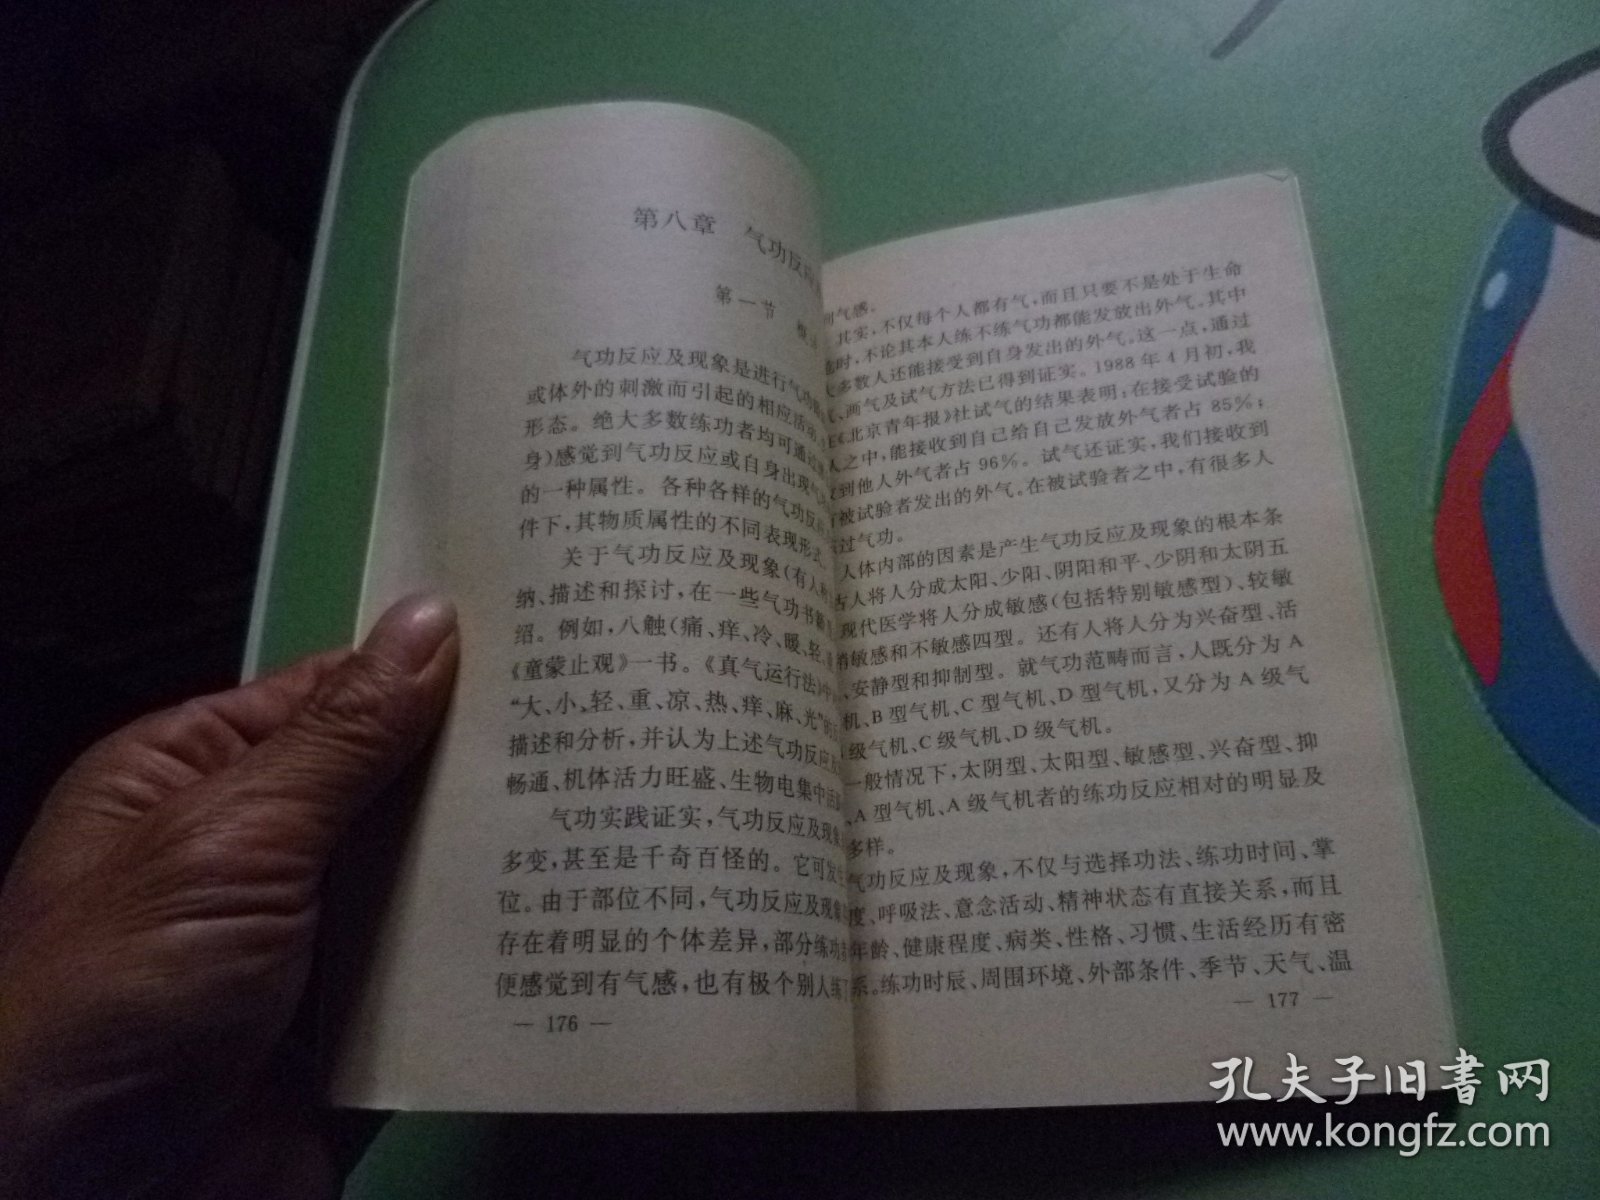 第八章 气功反
第一节 概
气功反应及现象是进行气功
或体外的刺激而引起的相应活动
形态。绝大多数练功者均可通过
身)感觉到气功反应或自身出现气
的一种属性。各种各样的气功反
件下,其物质属性的不同表现形式
关于气功反应及现象(有人
纳、描述和探讨,在一些气功书
绍。例如,八触(痛、痒、冷、暖、轻、
《童蒙止观》一书。《真气运行法》
“大、小、轻、重、凉、热、痒、麻、光”的
描述和分析,并认为上述气功反应
畅通、机体活力旺盛、生物电集中
气功实践证实,气功反应及现象
多变,甚至是千奇百怪的。它可发
位。由于部位不同,气功反应及现象
存在着明显的个体差异,部分练功
便感觉到有气感,也有极个别人练
— 176 —
气感。
其实,不仅每个人都有气,而且只要不是处于生命
时,不论其本人练不练气功都能发放出外气。其中
多数人还能接受到自身发出的外气。这一点,通过
、画气及试气方法已得到证实。1988年4月初,我
《北京青年报》社试气的结果表明,在接受试验的
人之中,能接收到自己给自己发放外气者占85%;
到他人外气者占96%。试气还证实,我们接收到
被试验者发出的外气。在被试验者之中,有很多人
过气功。
人体内部的因素是产生气功反应及现象的根本条
古人将人分成太阳、少阳、阴阳和平、少阴和太阴五
现代医学将人分成敏感(包括特别敏感型)、较敏
敏感和不敏感四型。还有人将人分为兴奋型、活
、安静型和抑制型。就气功范畴而言,人既分为A
机、B型气机、C型气机、D型气机,又分为A级气
级气机、C级气机、D级气机。
一般情况下,太阴型、太阳型、敏感型、兴奋型、抑
、A型气机、A级气机者的练功反应相对的明显及
多样。
气功反应及现象,不仅与选择功法、练功时间、掌
度、呼吸法、意念活动、精神状态有直接关系,而且
年龄、健康程度、病类、性格、习惯、生活经历有密
系。练功时辰、周围环境、外部条件、季节、天气、温
— 177 —
孔夫子旧书网
www.kongfz.com